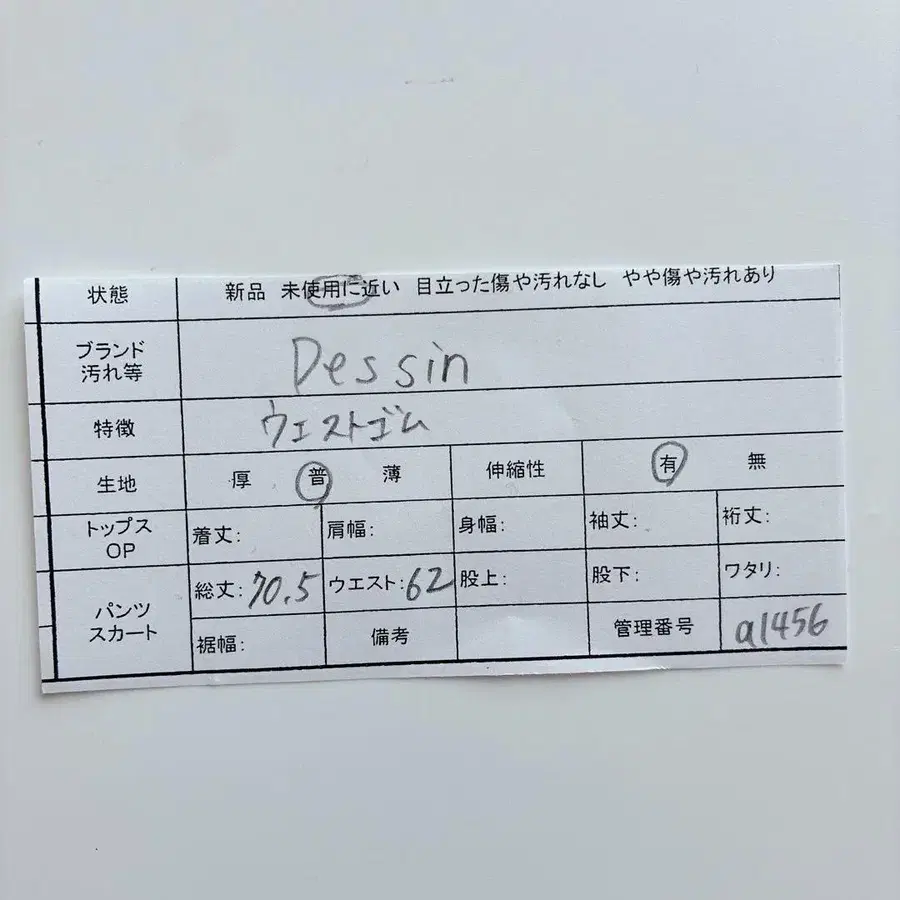 状態 新品 未使用に近い 目立った傷や汚れなし やや傷や汚れあり
ブランド
汚れ等 Dessin
特徴 ウエストゴム
生地 厚 普 薄 伸縮性 有 無
トップス
OP 着丈: 肩幅: 身幅: 袖丈: 裄丈:
パンツ
スカート
総丈:70.5 ウエスト:62 股上: 股下: ワタリ:
裾幅: 備考 管理番号 a1456